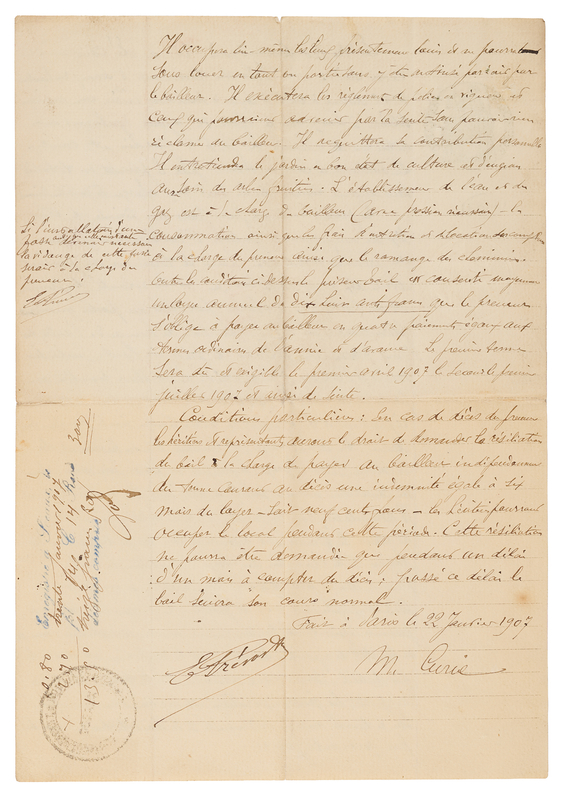 Il occupera lui-même les lieux présentement loués et ne pourra
sous louer en tout ou partie sans y être autorisé par écrit par
le bailleur. Il exécutera les règlements de police en vigueur et
ceux qui pourraient survenir par la suite sans pouvoir rien
réclamer du bailleur. Il acquittera la contribution personnelle
Il entretiendra le jardin en bon état de culture et d'engrais
au soin des arbres fruitiers. L'établissement de l'eau et du
gaz est à la charge du bailleur la
consommation ainsi que les frais d'entretien et location des compteurs
à la charge du preneur ainsi que le ramonage des cheminées
outre les conditions ci dessus le présent bail est consenti moyennant
un loyer annuel de dix huit cents francs que le preneur
s'oblige à payer au bailleur en quatre paiements égaux aux
termes ordinaires de l'année et d'avance. Le premier terme
sera dû et exigible le premier avril 1907 le second le premier
juillet 1907 et ainsi de suite.
Conditions particulières : En cas de décès du preneur
les héritiers et représentants auront le droit de demander la résiliation
du bail à la charge de payer au bailleur indépendamment
du terme courant au décès une indemnité égale à six
mois de loyer - soit neuf cents francs - les héritiers pourront
occuper le local pendant cette période. Cette résiliation
ne pourra être demandée que pendant un délai
d'un mois à compter du décès ; passé ce délai le
bail suivra son cours normal.
Fait à Paris le 22 Janvier 1907
M. Curie
Si l'installation d'une
fosse
la vidange de cette fosse
serait à la charge du
preneur.